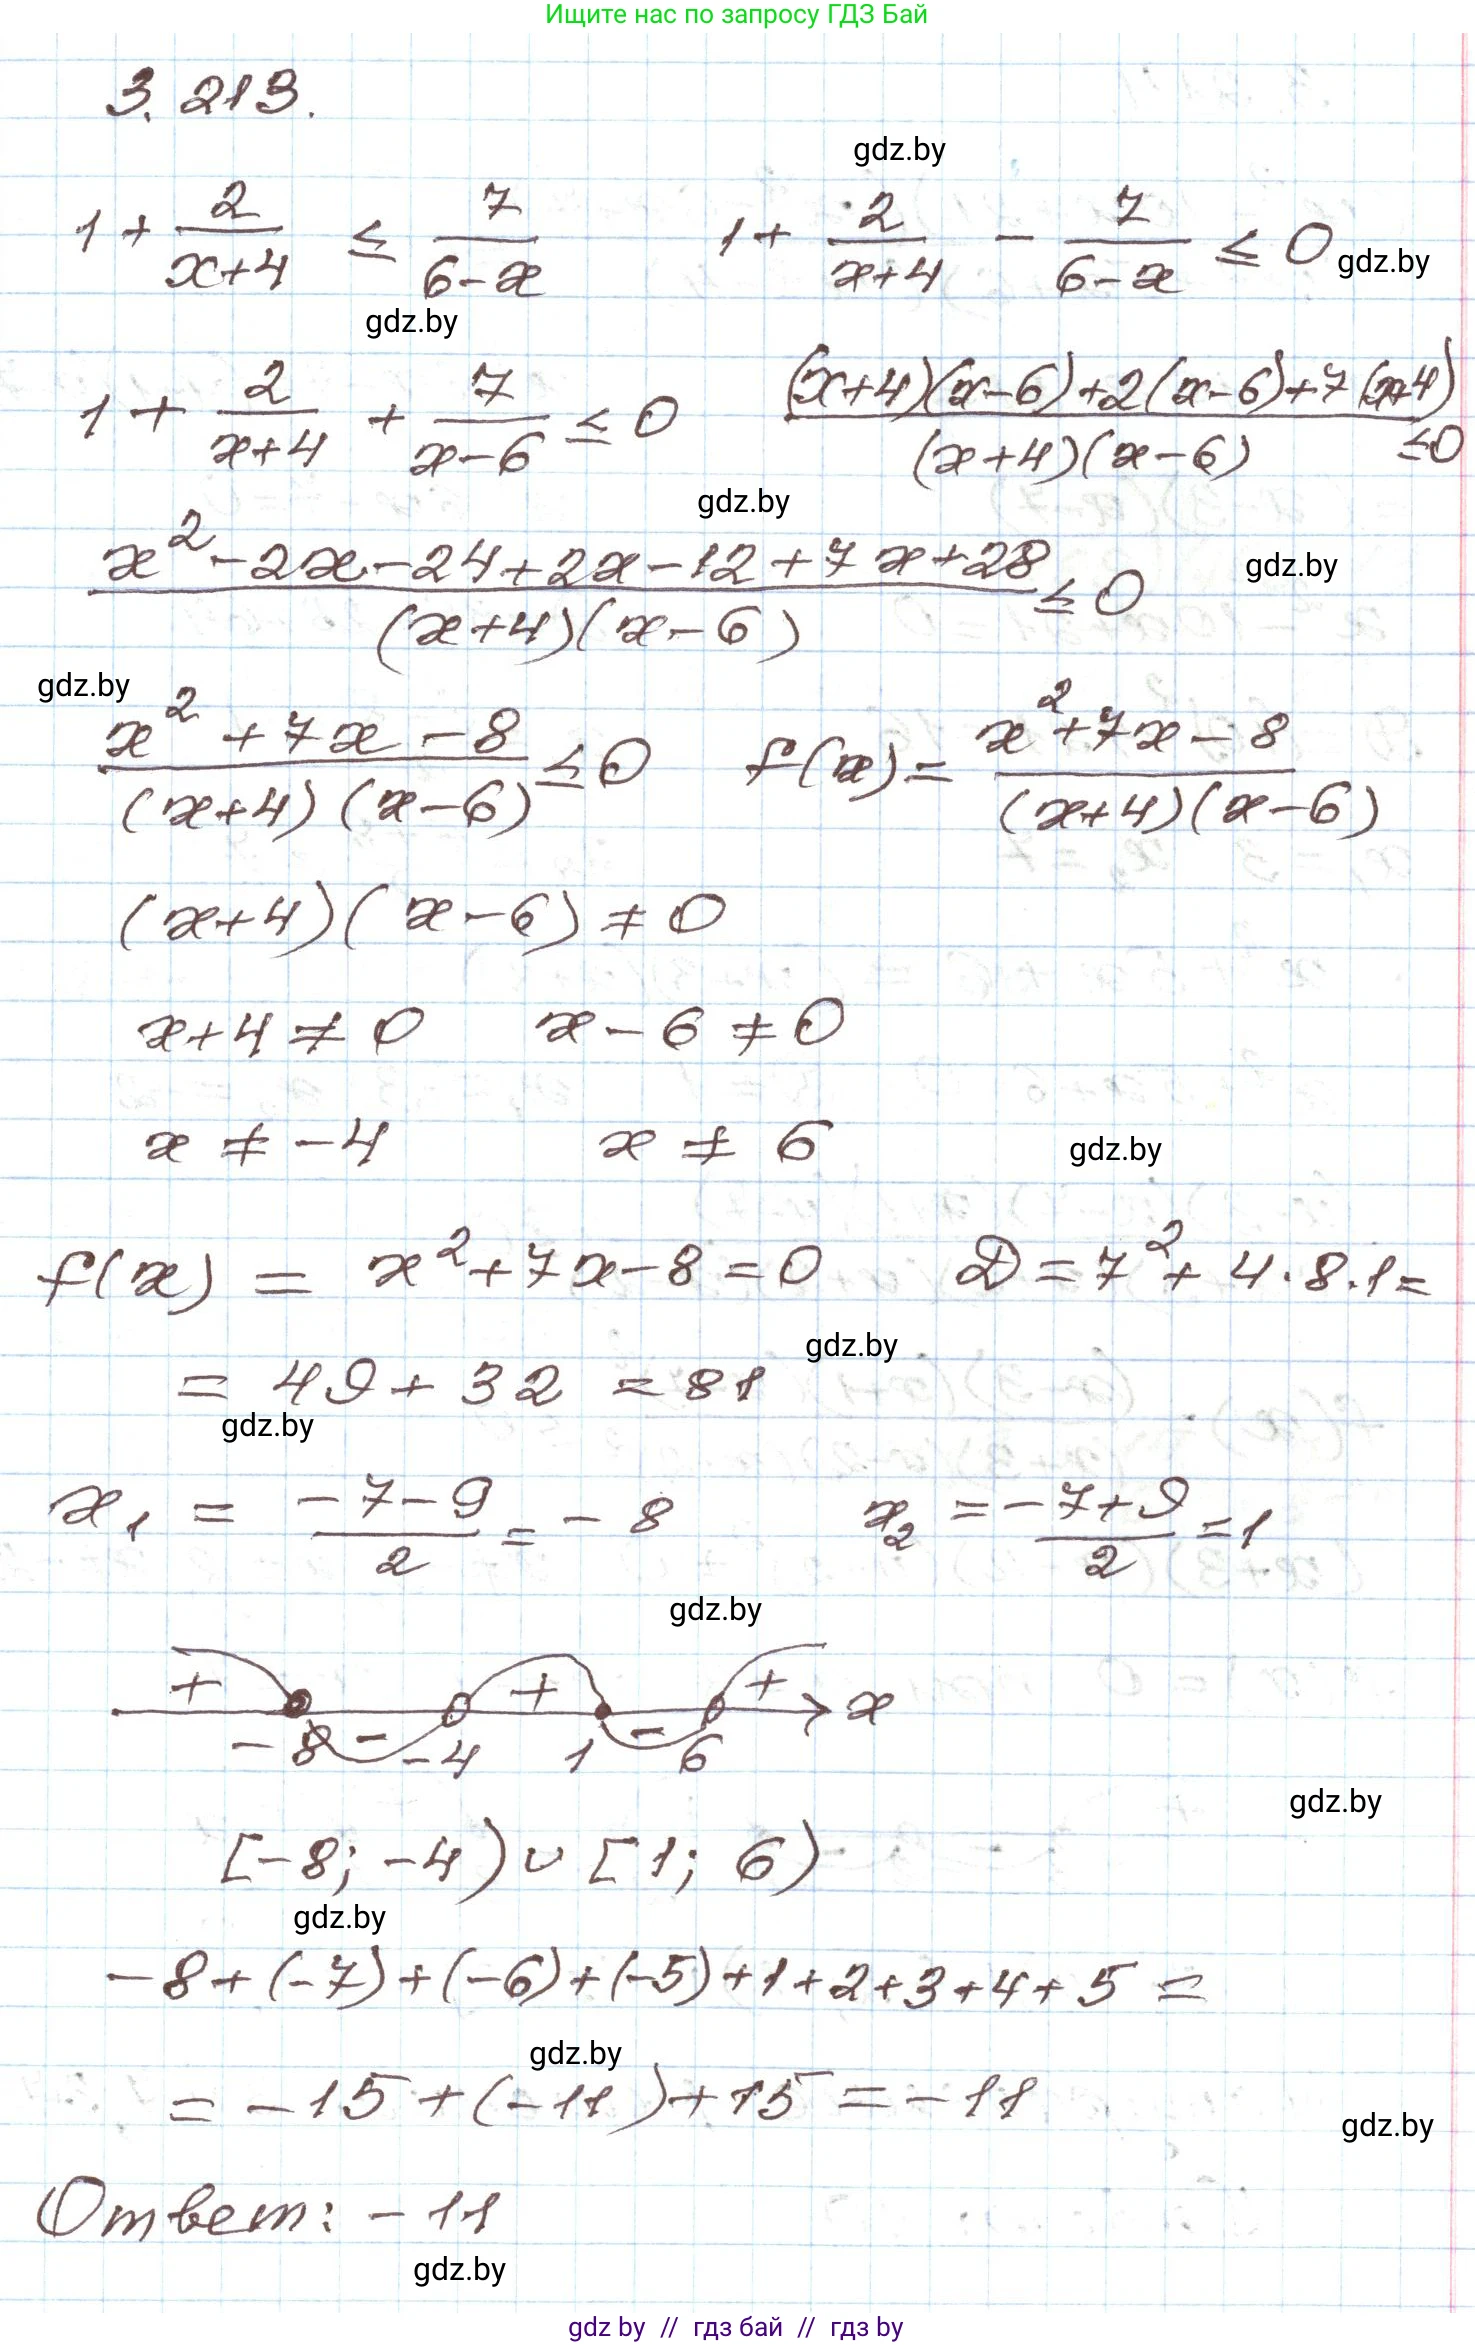 Ищите нас по запросу ГДЗ Бай
3.213.
gdz.by
1 + 2/(x+4) ≤ 7/(6-x)    1 + 2/(x+4) - 7/(6-x) ≤ 0
gdz.by
gdz.by
1 + 2/(x+4) + 7/(x-6) ≤ 0    ((x+4)(x-6)+2(x-6)+7(x+4))/((x+4)(x-6)) ≤0
gdz.by
(x²-2x-24+2x-12+7x+28)/((x+4)(x-6)) ≤ 0
gdz.by
gdz.by
(x²+7x-8)/((x+4)(x-6)) ≤ 0    f(x) = (x²+7x-8)/((x+4)(x-6))
(x+4)(x-6) ≠ 0
x+4 ≠ 0    x-6 ≠ 0
x ≠ -4    x ≠ 6
gdz.by
f(x) = x²+7x-8=0    D=7²+4·8·1=
gdz.by
= 49+32 = 81
gdz.by
x₁ = (-7-9)/2 = -8    x₂ = (-7+9)/2 = 1
gdz.by
+ - + - + x
-8 -4 1 6
gdz.by
[-8; -4) ∪ [1; 6)
gdz.by
-8+(-7)+(-6)+(-5)+1+2+3+4+5 =
gdz.by
= -15+(-11)+15 = -11
gdz.by
Ответ: -11
gdz.by
gdz by // гдз бай // гдз by